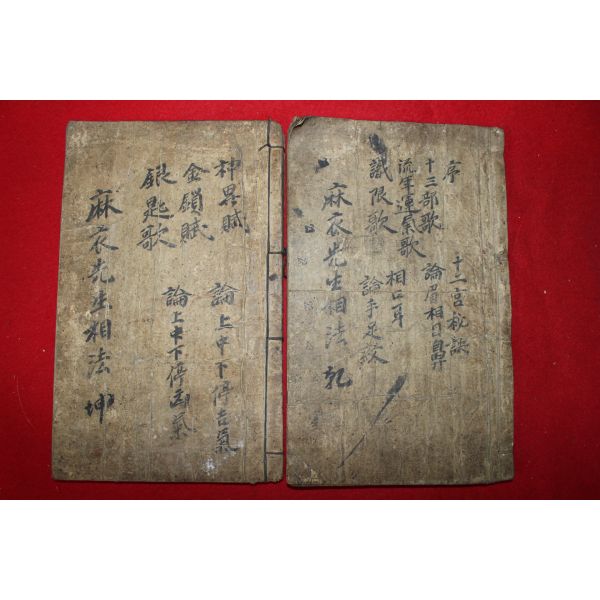 序 十二宮秘訣
十三部歌 論眉相目鼻
流年運氣歌 相口耳
識限歌 論手足紋
麻衣先生相法 乾
神異賦 論上中下停吉氣
金鎖賦 論上中下停凶氣
銀匙歌
麻衣先生相法 坤